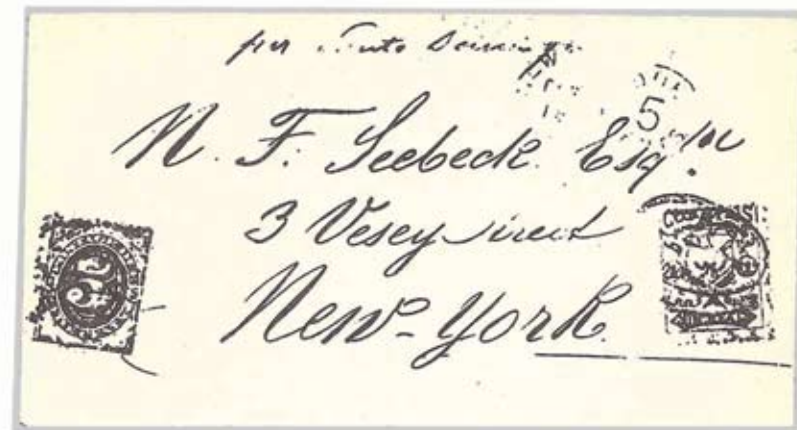 per Santo Domingo
5
N. F. Seebeck Esq.re
3 Vesey Street
New-York